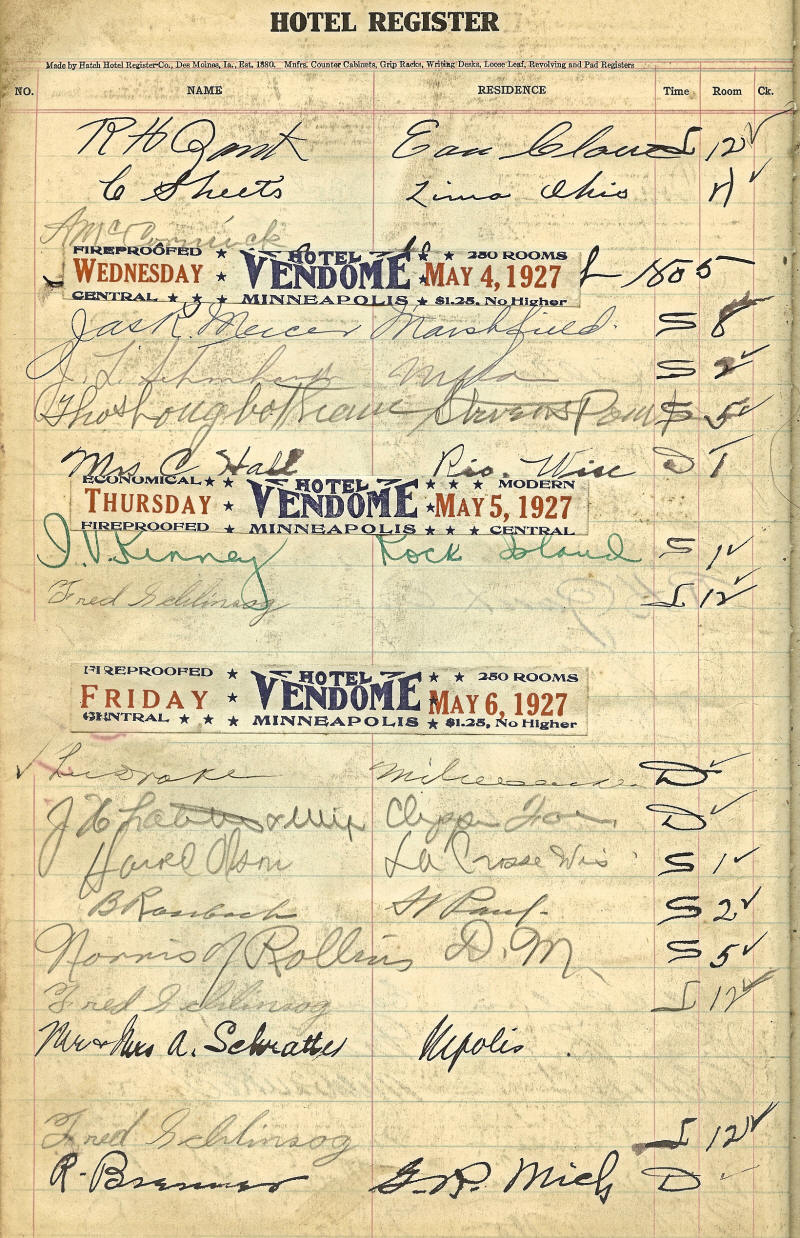 HOTEL REGISTER
Made by Hatch Hotel Register Co., Des Moines, Ia., Est. 1880. Mnfrs. Counter Cabinets, Grip Racks, Writing Desks, Loose Leaf, Revolving and Pad Registers
NO. NAME RESIDENCE Time Room Ck.
R H Eau Claire 12
C Sheets Lima Ohio
A McCormick
FIREPROOFED ★ HOTEL ★ ★ 250 ROOMS
WEDNESDAY ★ VENDOME ★ MAY 4, 1927
CENTRAL ★ ★ ★ MINNEAPOLIS ★ $1.25, No Higher
Jas R. Mercer Marshfield. S 8
J. L. Mpls S 2
Stevens Point S 5
Mrs C Hall Rio. Wisc D 1
ECONOMICAL ★ ★ HOTEL ★ ★ ★ MODERN
THURSDAY ★ VENDOME ★ MAY 5, 1927
FIREPROOFED ★ MINNEAPOLIS ★ ★ ★ CENTRAL
J. V. Kinney Rock Island S 1
Fred Schlinsog 12
FIREPROOFED ★ HOTEL ★ ★ 250 ROOMS
FRIDAY ★ VENDOME ★ MAY 6, 1927
CENTRAL ★ ★ ★ MINNEAPOLIS ★ $1.25, No Higher
Drake Milwaukee D
J D
Olson La Crosse Wis S 1
B St Paul S 2
Norris J Rollins D. M. S 5
Fred Schlinsog 12
Mr & Mrs A. Schratter Mpolis
Fred Schlinsog 12
R. Brenner G. R. Mich D